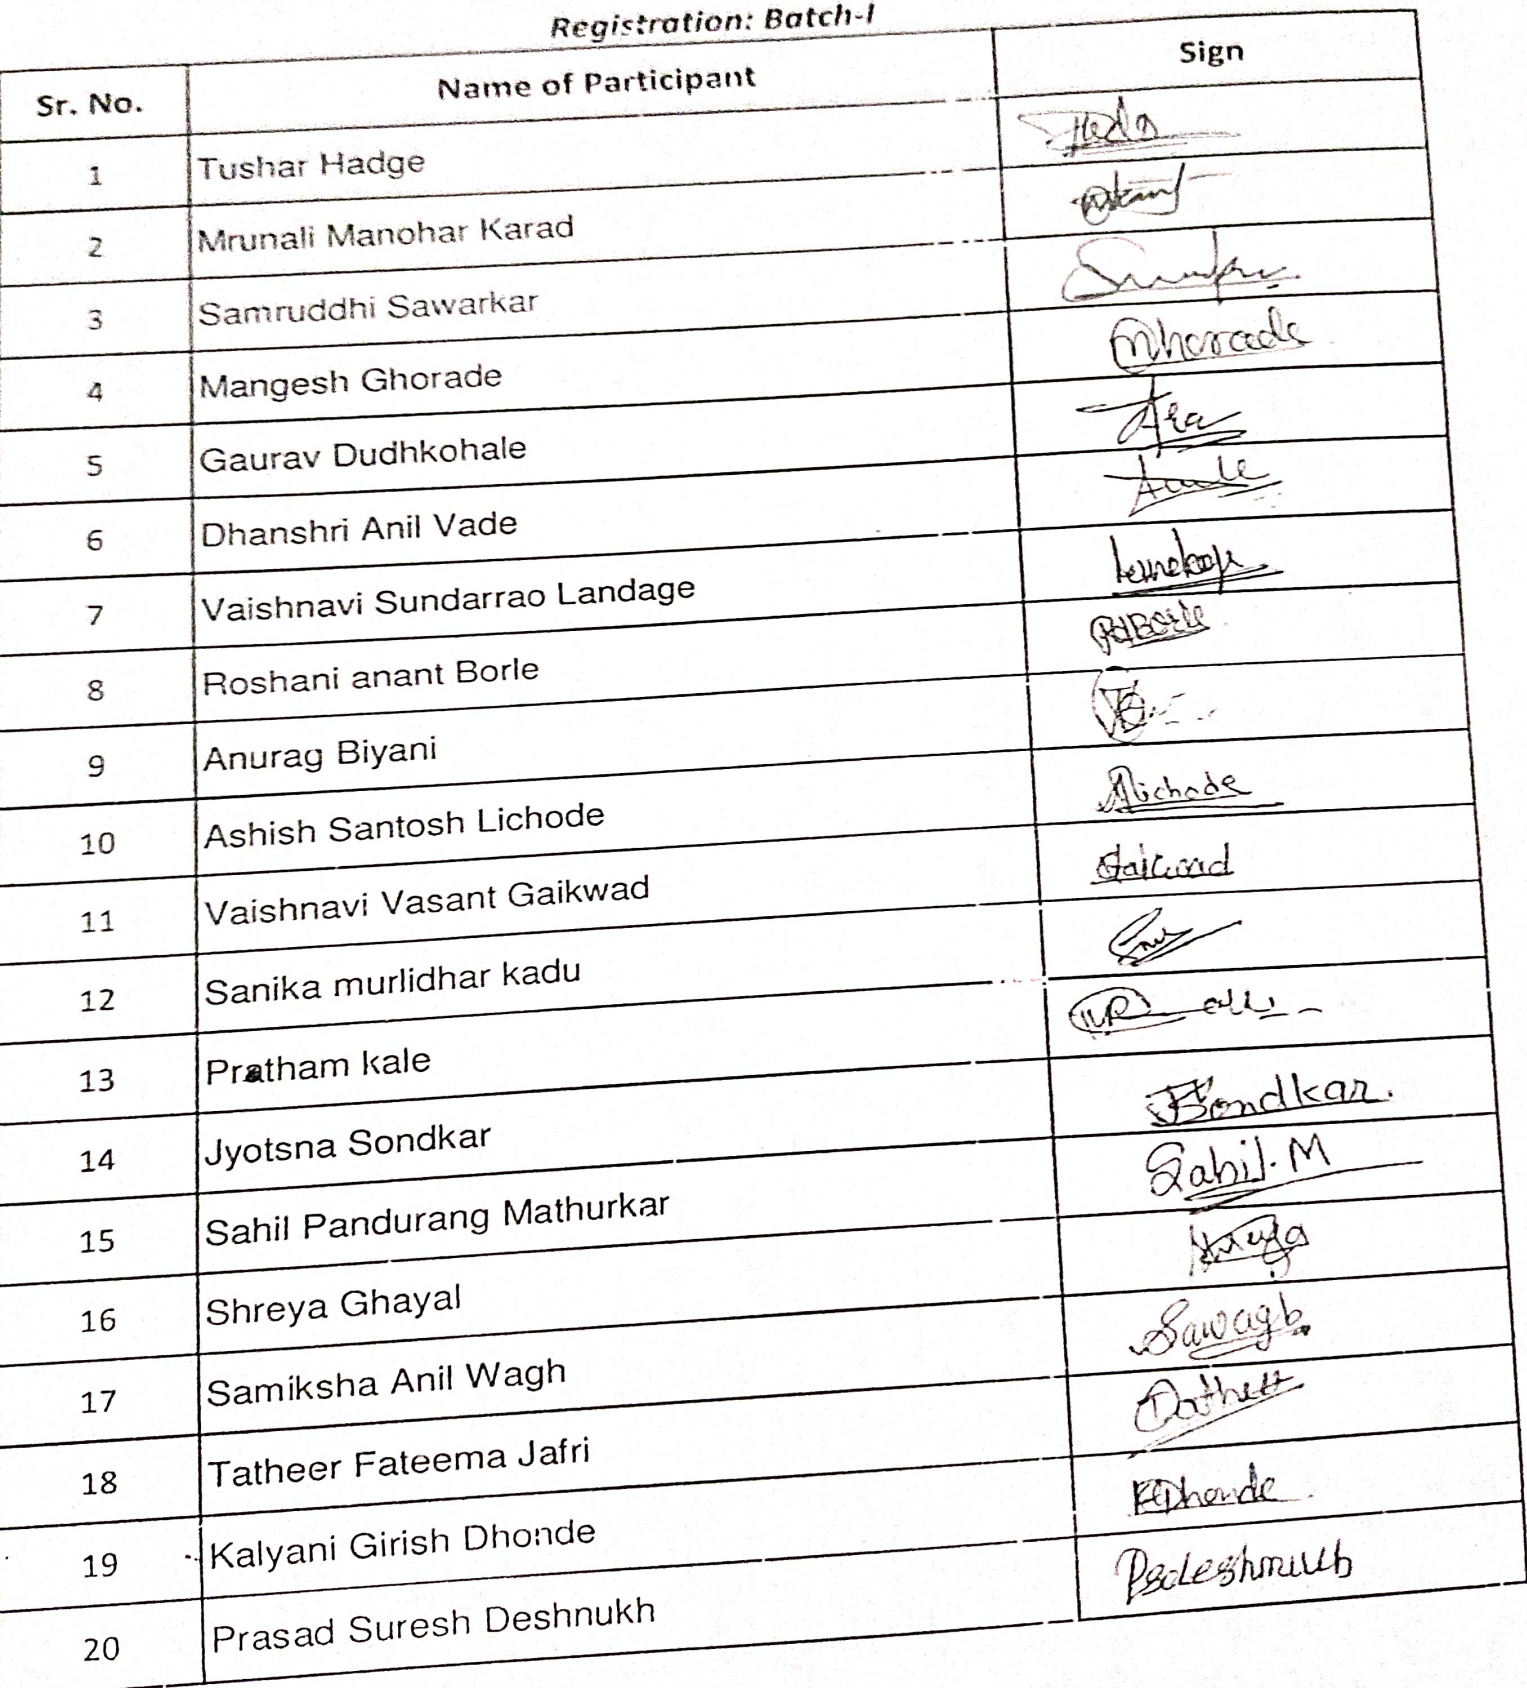 Registration: Batch-I
Sr. No. Name of Participant Sign
1 Tushar Hadge
2 Mrunali Manohar Karad
3 Samruddhi Sawarkar
4 Mangesh Ghorade
5 Gaurav Dudhkohale
6 Dhanshri Anil Vade
7 Vaishnavi Sundarrao Landage
8 Roshani anant Borle
9 Anurag Biyani
10 Ashish Santosh Lichode
11 Vaishnavi Vasant Gaikwad Gaikwad
12 Sanika murlidhar kadu
13 Pratham kale
14 Jyotsna Sondkar Sondkar.
15 Sahil Pandurang Mathurkar Sahil.M
16 Shreya Ghayal
17 Samiksha Anil Wagh
18 Tatheer Fateema Jafri
19 Kalyani Girish Dhonde
20 Prasad Suresh Deshnukh